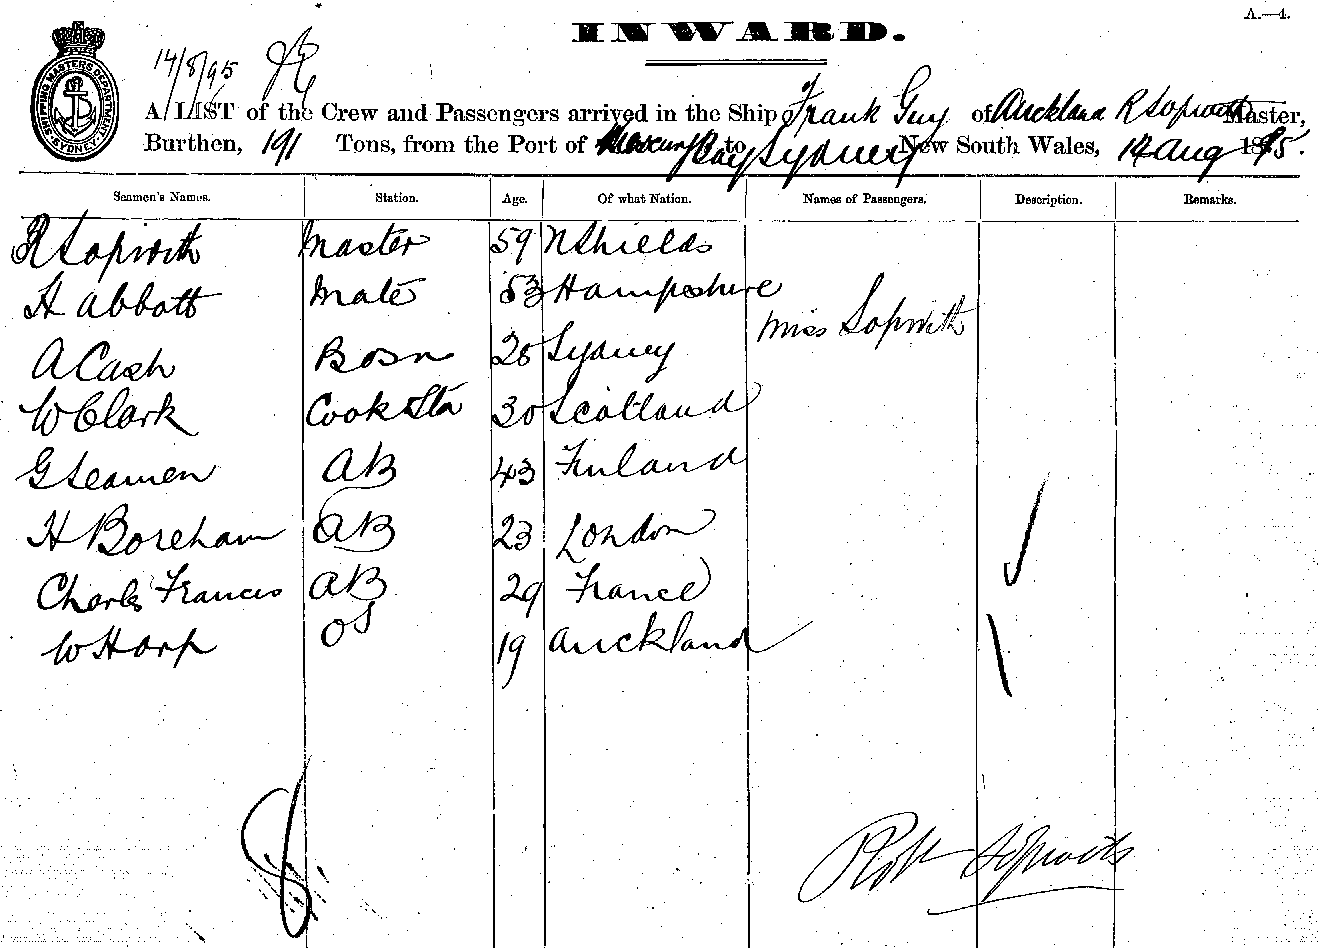 A.—4.
INWARD.
14/8/95
SHIPPING MASTERS DEPARTMENT SYDNEY
A LIST of the Crew and Passengers arrived in the Ship Frank Guy of Auckland R Sopwith Master,
Burthen, 191 Tons, from the Port of Mercury Bay to Sydney New South Wales, 14 Aug 1895.
Seamen's Names. Station. Age. Of what Nation. Names of Passengers. Description. Remarks.
R Sopwith Master 59 N Shields
H Abbott Mate 53 Hampshire
Miss Sopwith
A Cash Bosn 26 Sydney
W Clark Cook & Std 30 Scotland
G Seamen AB 43 Finland
H Boreham AB 23 London
Charles Francis AB 29 France
W Harp OS 19 Auckland
8
Robt Sopwith